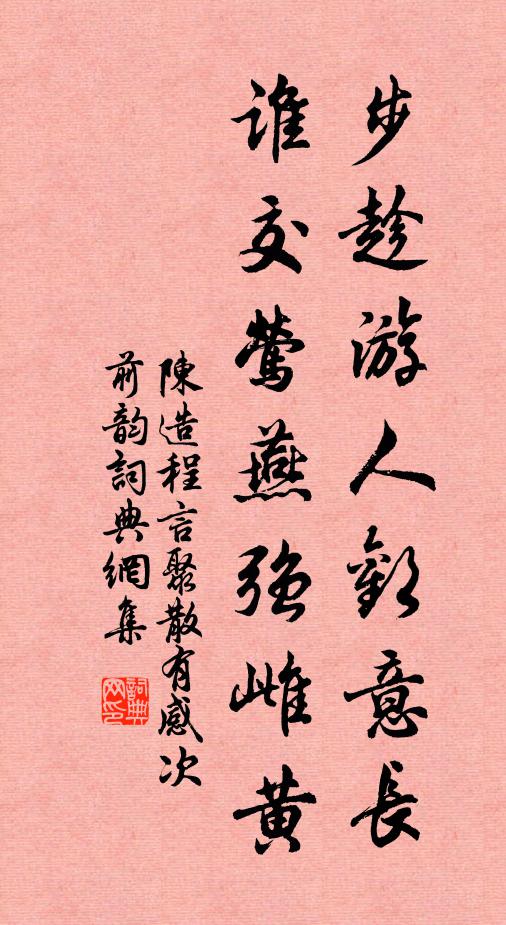 步趁游人歡意長
誰交鶯燕強雌黄
陳造程言聚散有感次
前韵詞典網集
詞典网印